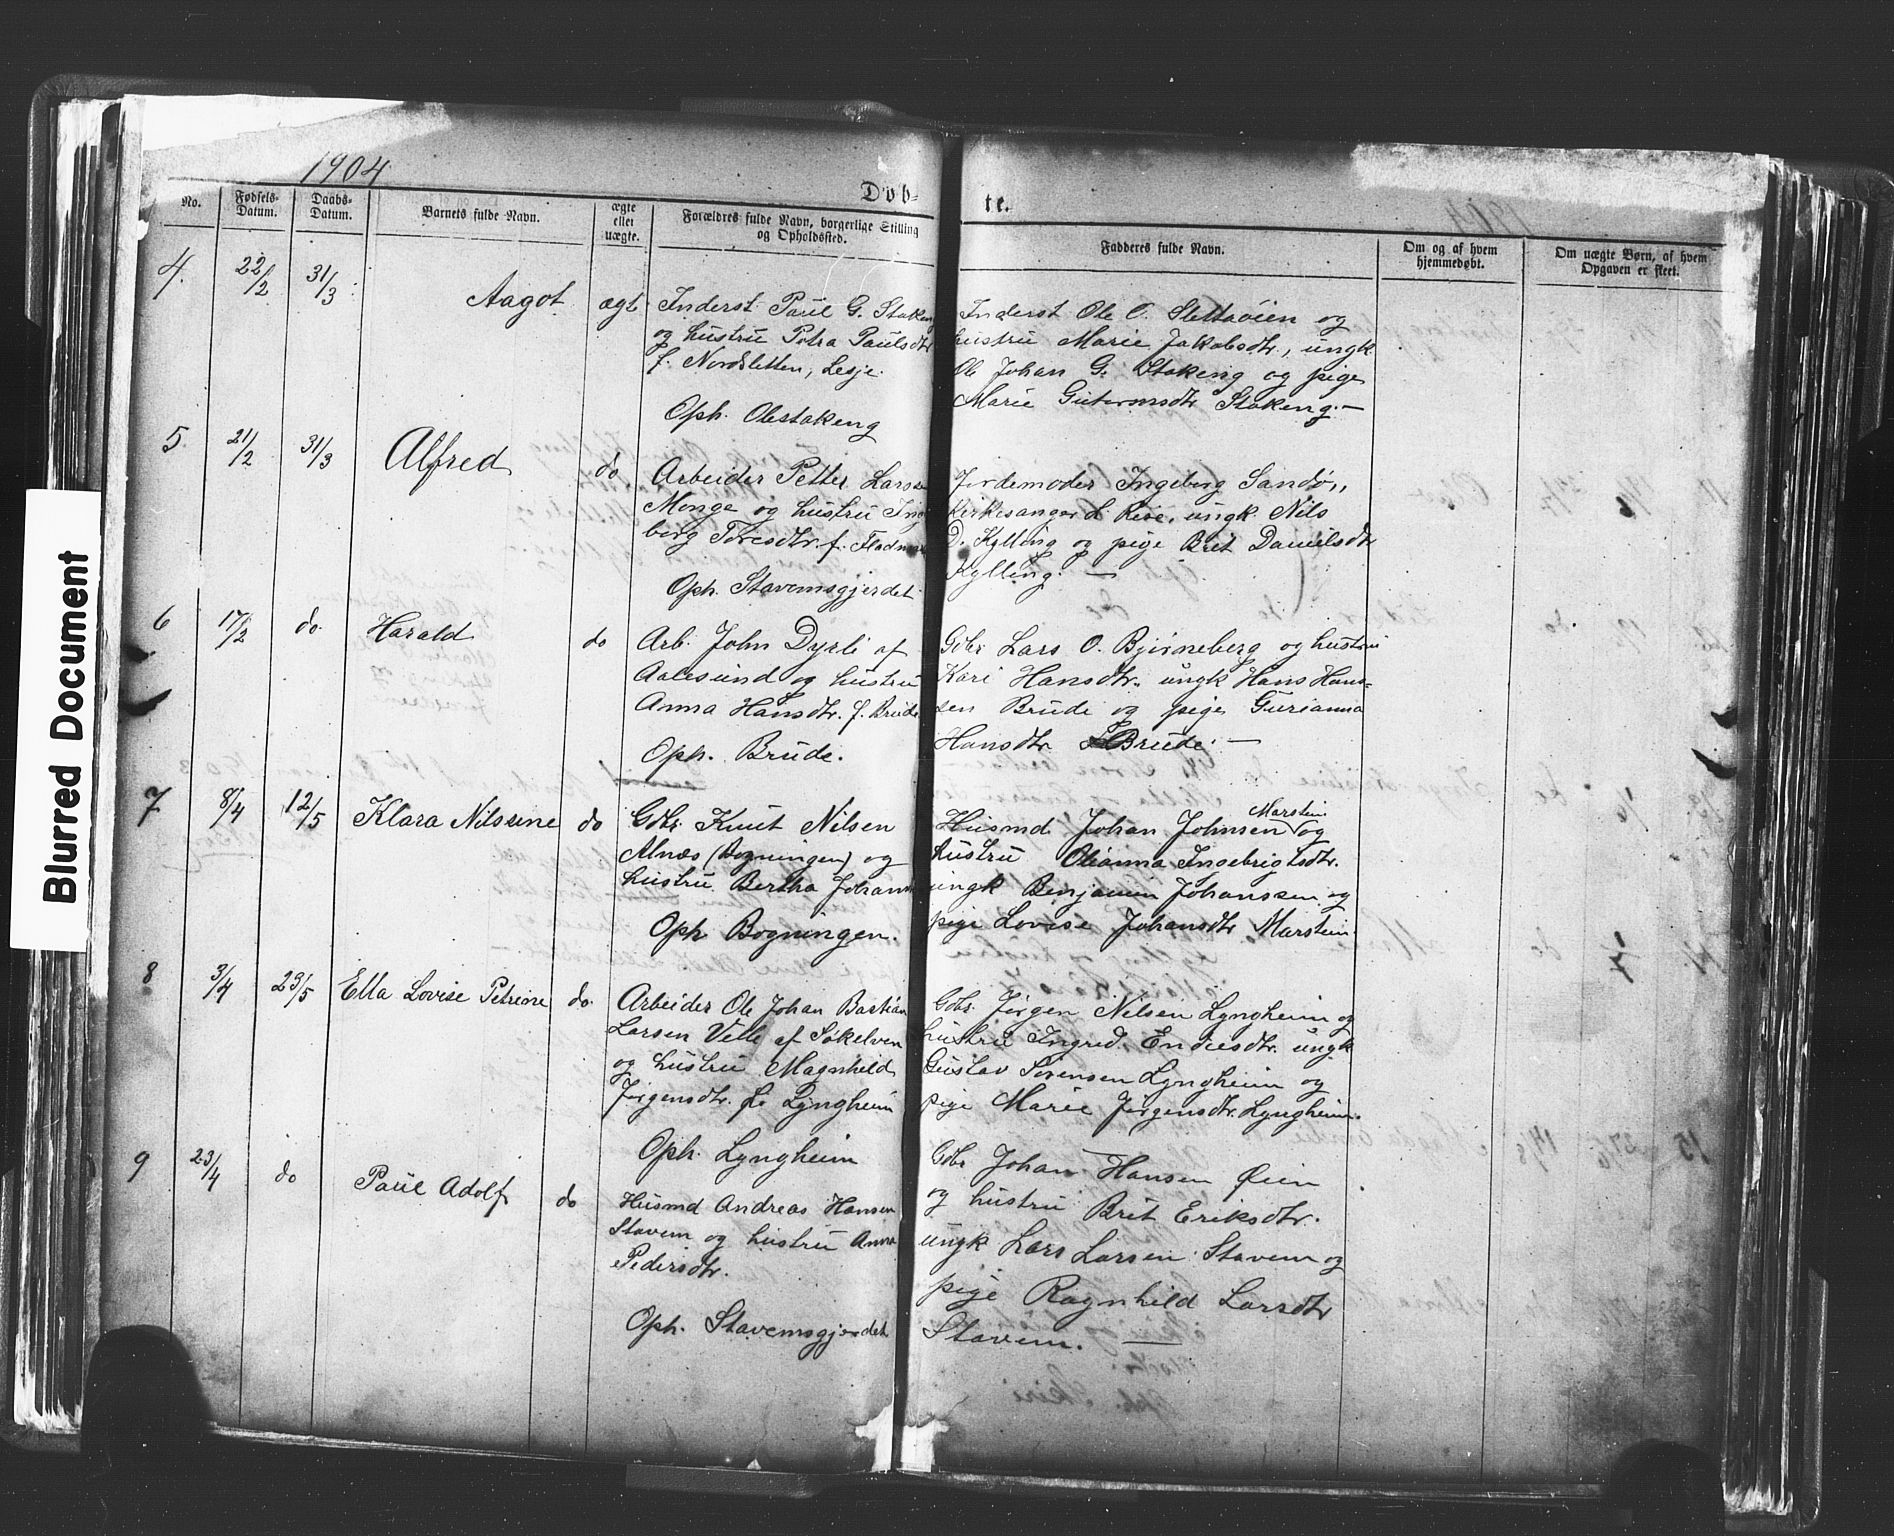 1904
Døb-
te.
No.
Fødsels-
Datum.
Daabs-
Datum.
Barnets fulde Navn.
ægte
eller
uægte.
Forældres fulde Navn, borgerlige Stilling
og Opholdssted.
Fadderes fulde Navn.
Om og af hvem
hjemmedøbt.
Om uægte Børn, af hvem
Opgaven er skeet.
4. 22/2 31/3 Aagot ægt
Inderst Paul G. Stokeng
og hustru Petra Paulsdtr
f. Nordsletten, Lesje.
Oph. Olestokeng
Inderst Ole O. Slettaøien og
hustru Marie Jakobsdtr., ungk.
Ole Johan G. Stokeng og pige
Marie Gutormsdtr Stokeng. —
5 21/2 31/3 Alfred do
Arbeider Petter Larsen
Monge og hustru Inge
berg Toresdtr f. Fladmark
Oph. Stavemsgjerdet
Jordemoder Ingeborg Sandø,
Kirkesanger L. Rise, ungk. Nils
D. Kylling og pige Brit Danielsdtr
Kylling. —
6 17/2 do. Harald do
Arb. John Dyrli af
Aalesund og hustru
Anna Hansdtr. f. Brude
Oph. Brude.
Gbr Lars O. Bjørneberg og hustru
Kari Hansdtr. ungk Hans Hans-
sen Brude og pige Gurianna
Hansdtr Brude. —
7 8/4 12/5 Klara Nilsine do
Gbr. Knut Nilsen
Alnæs (Bogningen) og
hustru Bertha Johansd
Oph Bogningen.
Husmd Johan Johnsen Marstein og
hustru Olianna Ingebrigtsdtr.
ungk Benjamin Johanssen og
pige Lovise Johansdtr Marstein.
8 3/4 23/5 Ella Lovise Petrine do.
Arbeider Ole Johan Bastian
Larsen Velle af Søkelven
og hustru Magnhild
Jørgensdtr. f. Lyngheim
Oph. Lyngheim
Gbr. Jørgen Nilsen Lyngheim og
hustru Ingrid Endresdtr. ungk
Gustav Sørensen Lyngheim og
pige Marie Jørgensdtr. Lyngheim.
9 23/4 do Paul Adolf do
Husmd Andreas Hansen
Stavem og hustru Anna
Pedersdtr.
Oph. Stavemsgjerdet
Gbr Johan Hansen Øien
og hustru Brit Eriksdtr.
ungk Lars Larsen Stavem og
pige Ragnhild Larsdtr
Stavem. —
Blurred Document